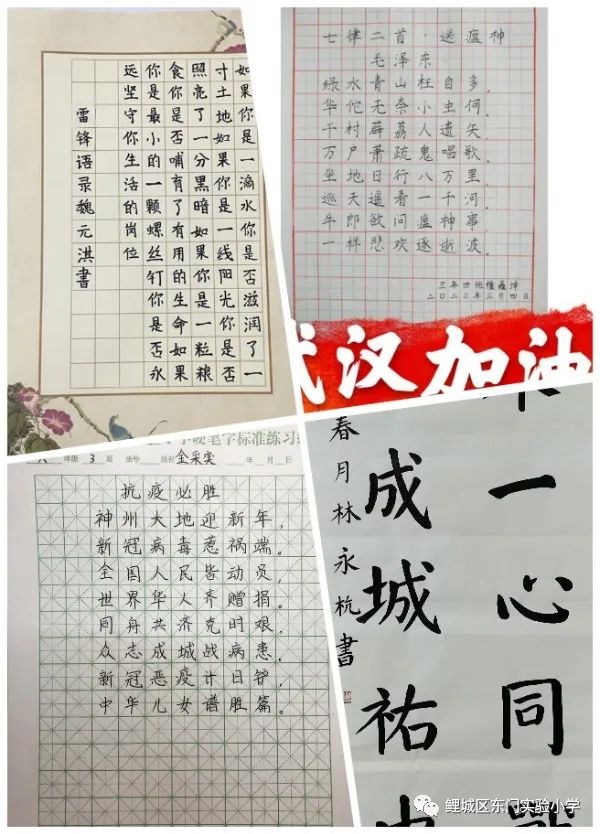 如果你是一滴水你是否滋润了一
寸土地如果你是一线阳光你是否
照亮了一分黑暗如果你是一粒粮
食你是否哺育了有用的生命如果
你是最小的一颗螺丝钉你是否永
远坚守你生活的岗位
雷锋语录魏元洪書
七律二首·送瘟神
毛泽东
绿水青山枉自多,
华佗无奈小虫何
千村薜荔人遗矢,
万户萧疏鬼唱歌。
坐地日行八万里,
巡天遥看一千河。
牛郎欲问瘟神事,
一样悲欢逐逝波。
三年四班
二〇二〇年三月四日
武汉加油
硬笔字标准练习
六年级 3 班 座号 姓名 金采奕 年 月 日
抗疫必胜
神州大地迎新年,
新冠病毒惹祸端。
全国人民皆动员,
世界华人齐赠捐。
同舟共济克时艰,
众志成城战病患。
新冠恶疫计日铲,
中华儿女谱胜篇。
一心同
成城祐
春月林永杭書
鲤城区东门实验小学